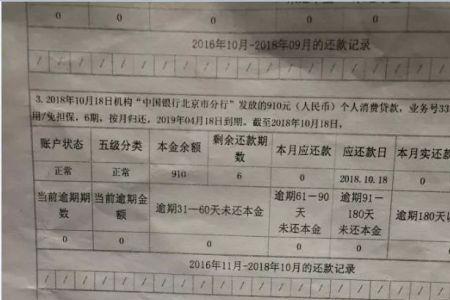 / / / / / / / / / / / / / / / / / / / / / / / /
2016年10月-2018年09月的还款记录
/ / / / / / / / / / / / / / / / / / / / / / / /
3. 2018年10月18日机构“中国银行北京市分行”发放的910元（人民币）个人消费贷款，业务号33
用/免担保，6期，按月归还，2019年04月18日到期。截至2018年10月18日，
账户状态 五级分类 本金余额 剩余还款期数 本月应还款 应还款日 本月实还款
正常 正常 910 6 0 2018.10.18 0
当前逾期期数 当前逾期金额 逾期31—60天未还本金 逾期61—90天未还本金 逾期91—180天未还本金 逾期180天以
0 0 0 0 0
2016年11月-2018年10月的还款记录
/ / / / / / / / / / / / / / / / / / / / / / / /